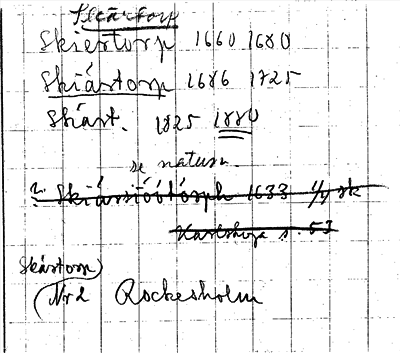 Skårtorp
Skiertorp 1660 1680
Skiårtorp 1686 1725
Skårt. 1825 1880
se naturn.
2. Skiärsiöötorph 1633 1/4 sk
Karlskoga s. 53
Skårtorp
Nr 2 Rockesholm